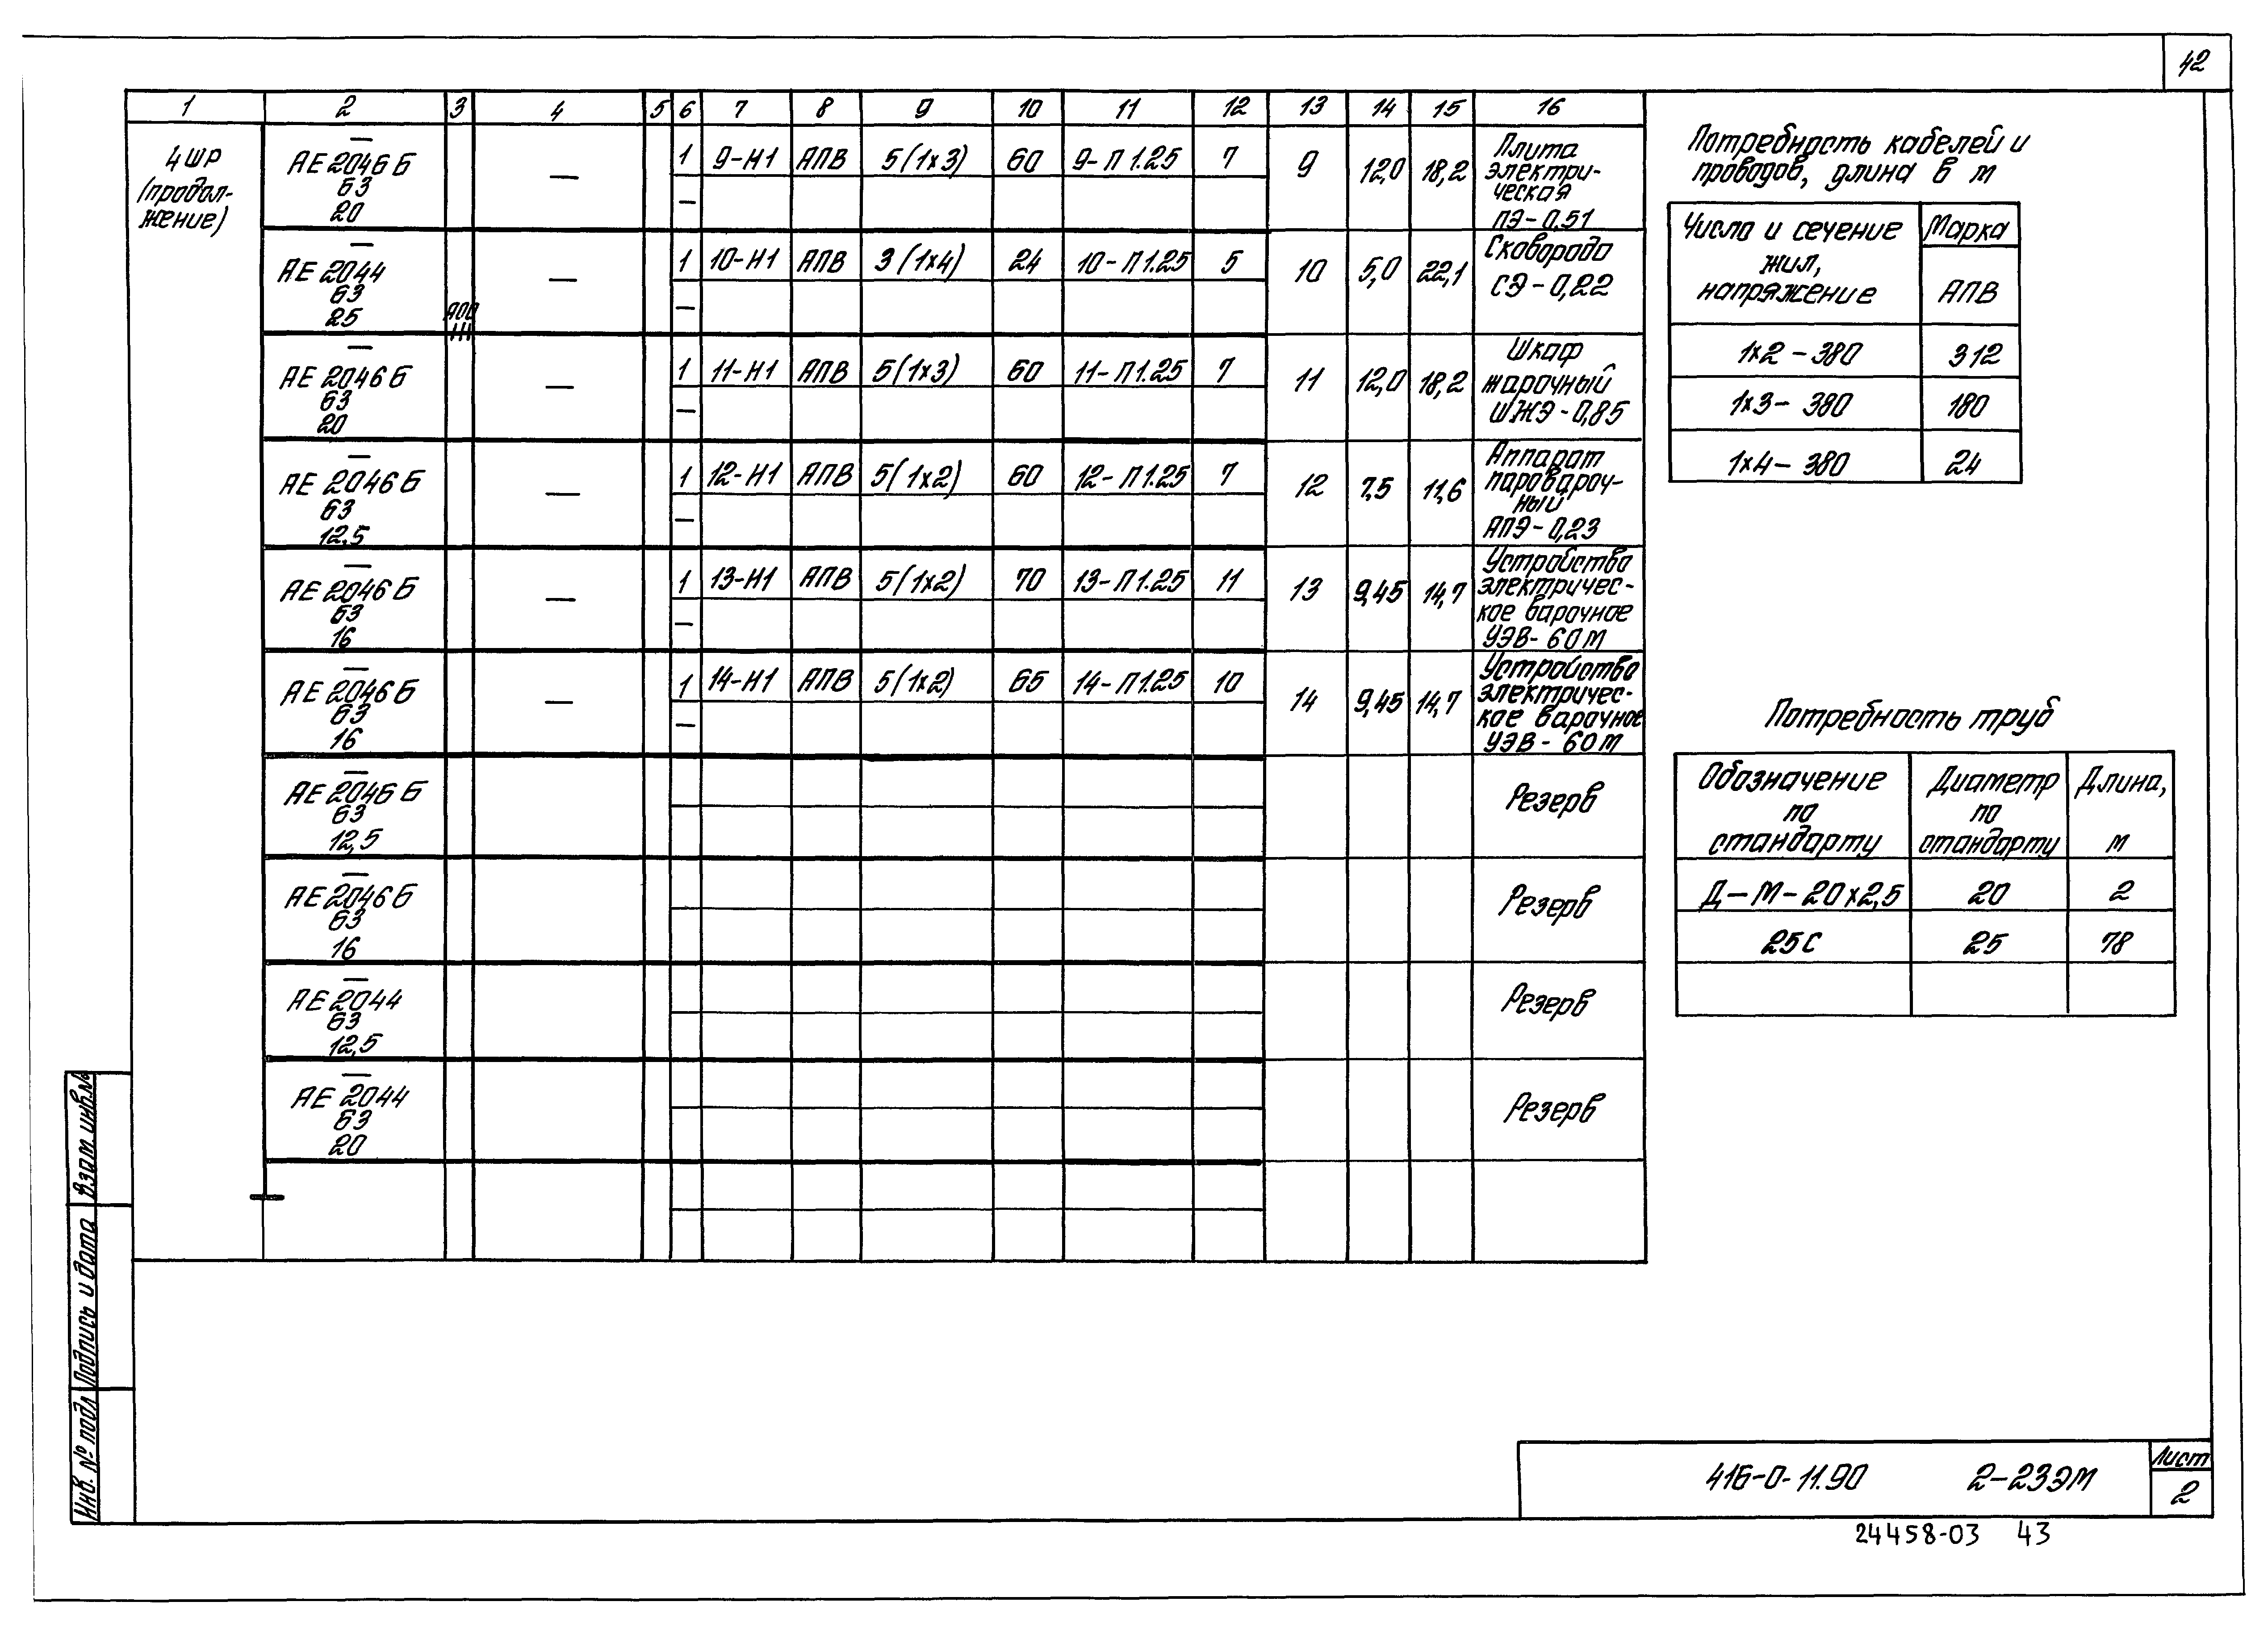 42
1 2 3 4 5 6 7 8 9 10 11 12 13 14 15 16
4ШР
(продол-
жение)
—
АЕ 2046 Б
63
20
— 1 9-Н1 АПВ 5(1х3) 60 9-П1.25 7 9 12,0 18,2
—
Плита
электри-
ческая
ПЭ-0,51
—
АЕ 2044
63
25
— 1 10-Н1 АПВ 3(1х4) 24 10-П1.25 5 10 5,0 22,1
—
Сковорода
СЭ-0,22
—
АЕ 2046 Б
63
20
— 1 11-Н1 АПВ 5(1х3) 60 11-П1.25 7 11 12,0 18,2
—
Шкаф
жарочный
ШЖЭ-0,85
—
АЕ 2046 Б
63
12.5
— 1 12-Н1 АПВ 5(1х2) 60 12-П1.25 7 12 7,5 11,6
—
Аппарат
пароварoч-
ный
АПЭ-0,23
—
АЕ 2046 Б
63
16
— 1 13-Н1 АПВ 5(1х2) 70 13-П1.25 11 13 9,45 14,7
—
Устройство
электричес-
кое варочное
УЭВ-60М
—
АЕ 2046 Б
63
16
— 1 14-Н1 АПВ 5(1х2) 65 14-П1.25 10 14 9,45 14,7
—
Устройство
электричес-
кое варочное
УЭВ-60М
—
АЕ 2046 Б
63
12,5
Резерв
—
АЕ 2046 Б
63
16
Резерв
—
АЕ 2044
63
12,5
Резерв
—
АЕ 2044
63
20
Резерв
Потребность кабелей и
проводов, длина в м
Число и сечение
жил,
напряжение
Марка
АПВ
1х2-380 312
1х3-380 180
1х4-380 24
Потребность труб
Обозначение
по
стандарту
Диаметр
по
стандарту
Длина,
м
Д-М-20х2,5 20 2
25С 25 78
Взам. инв.№
Подпись и дата
Инв. № подл
416-0-11.90 2-23ЭМ
Лист
2
24458-03 43